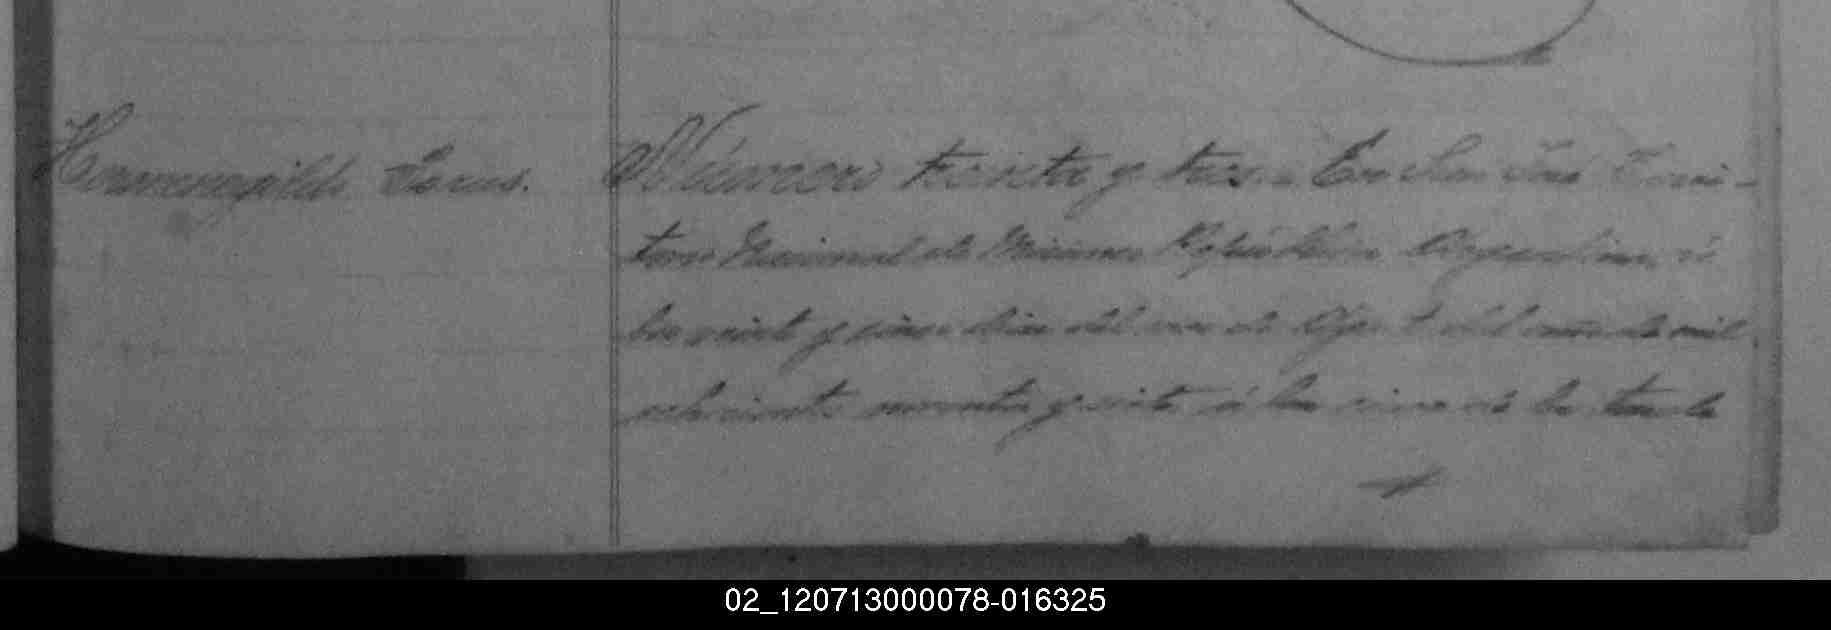 Hermenegildo
Número treinta y tres. En San José Terri-
torio Nacional de Misiones República Argentina á
los veinte y cinco dias del mes de Agosto del año de mil
ochociento noventa y siete á las cinco de la tarde
02_120713000078-016325